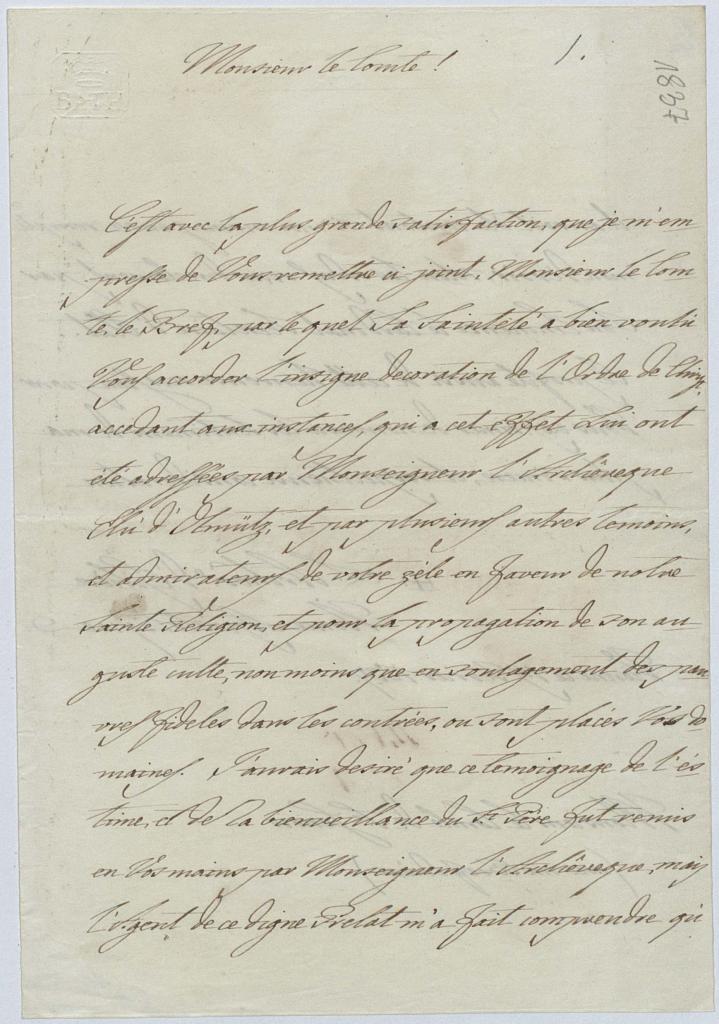 Monsieur le Comte!
1.
1837
BATH
C'est avec la plus grande satisfaction, que je m'em
presse de Vous remettre ci joint, Monsieur le Com
te, le Bref, par le quel Sa Sainteté a bien voulu
Vous accorder l'insigne decoration de l'Ordre de
accedant aux instances, qui a cet effet Lui ont
été adressées par Monseigneur l'Archêveque
Elû d'Olmütz, et par plusieurs autres temoins,
et admirateurs de votre zéle en faveur de notre
Sainte Religion, et pour la propagation de son au
guste culte, non moins que en soulagement des pau
vres fideles dans les contrées, ou sont placés Vos do
maines. J'aurais desiré que ce temoignage de l'és
time, et de la bienveillance du St. Pére fut remis
en Vos mains par Monseigneur l'Archêveque, mais
l'Agent de ce digne Prelat m'a fait comprendre qu